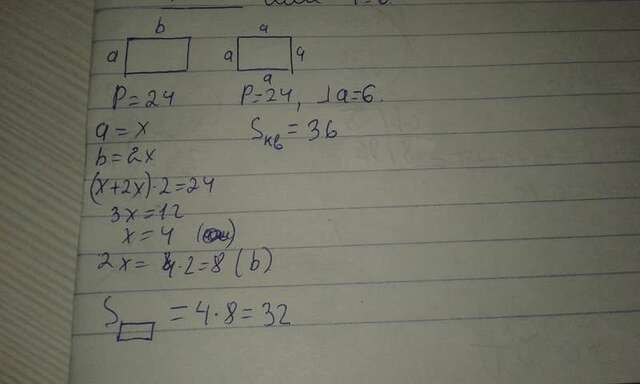 b a
a a a
a
P=24 P=24, ⅃a=6.
a=x Sкв=36
b=2x
(x+2x)·2=24
3x=12
x=4
2x=4·2=8 (b)
S▭=4·8=32